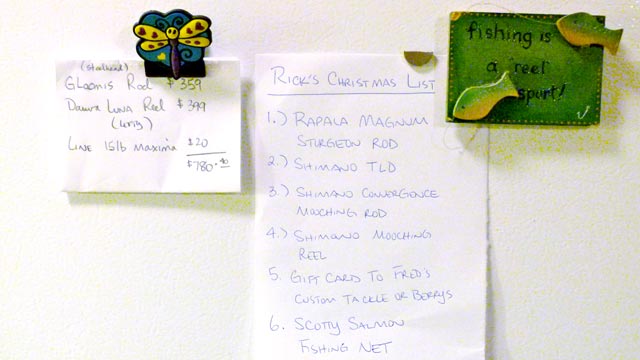 (steelhead)
GLoomis Rod $359
Daiwa Luna Reel $399
Line 15lb Maxima $20
$780.40
Rick's Christmas List
1.) Rapala Magnum
Sturgeon Rod
2.) Shimano TLD
3.) Shimano Convergence
Mooching Rod
4.) Shimano Mooching
Reel
5. Gift Card to Fred's
Custom Tackle or Berrys
6. Scotty Salmon
Fishing Net
fishing is
a reel
sport!